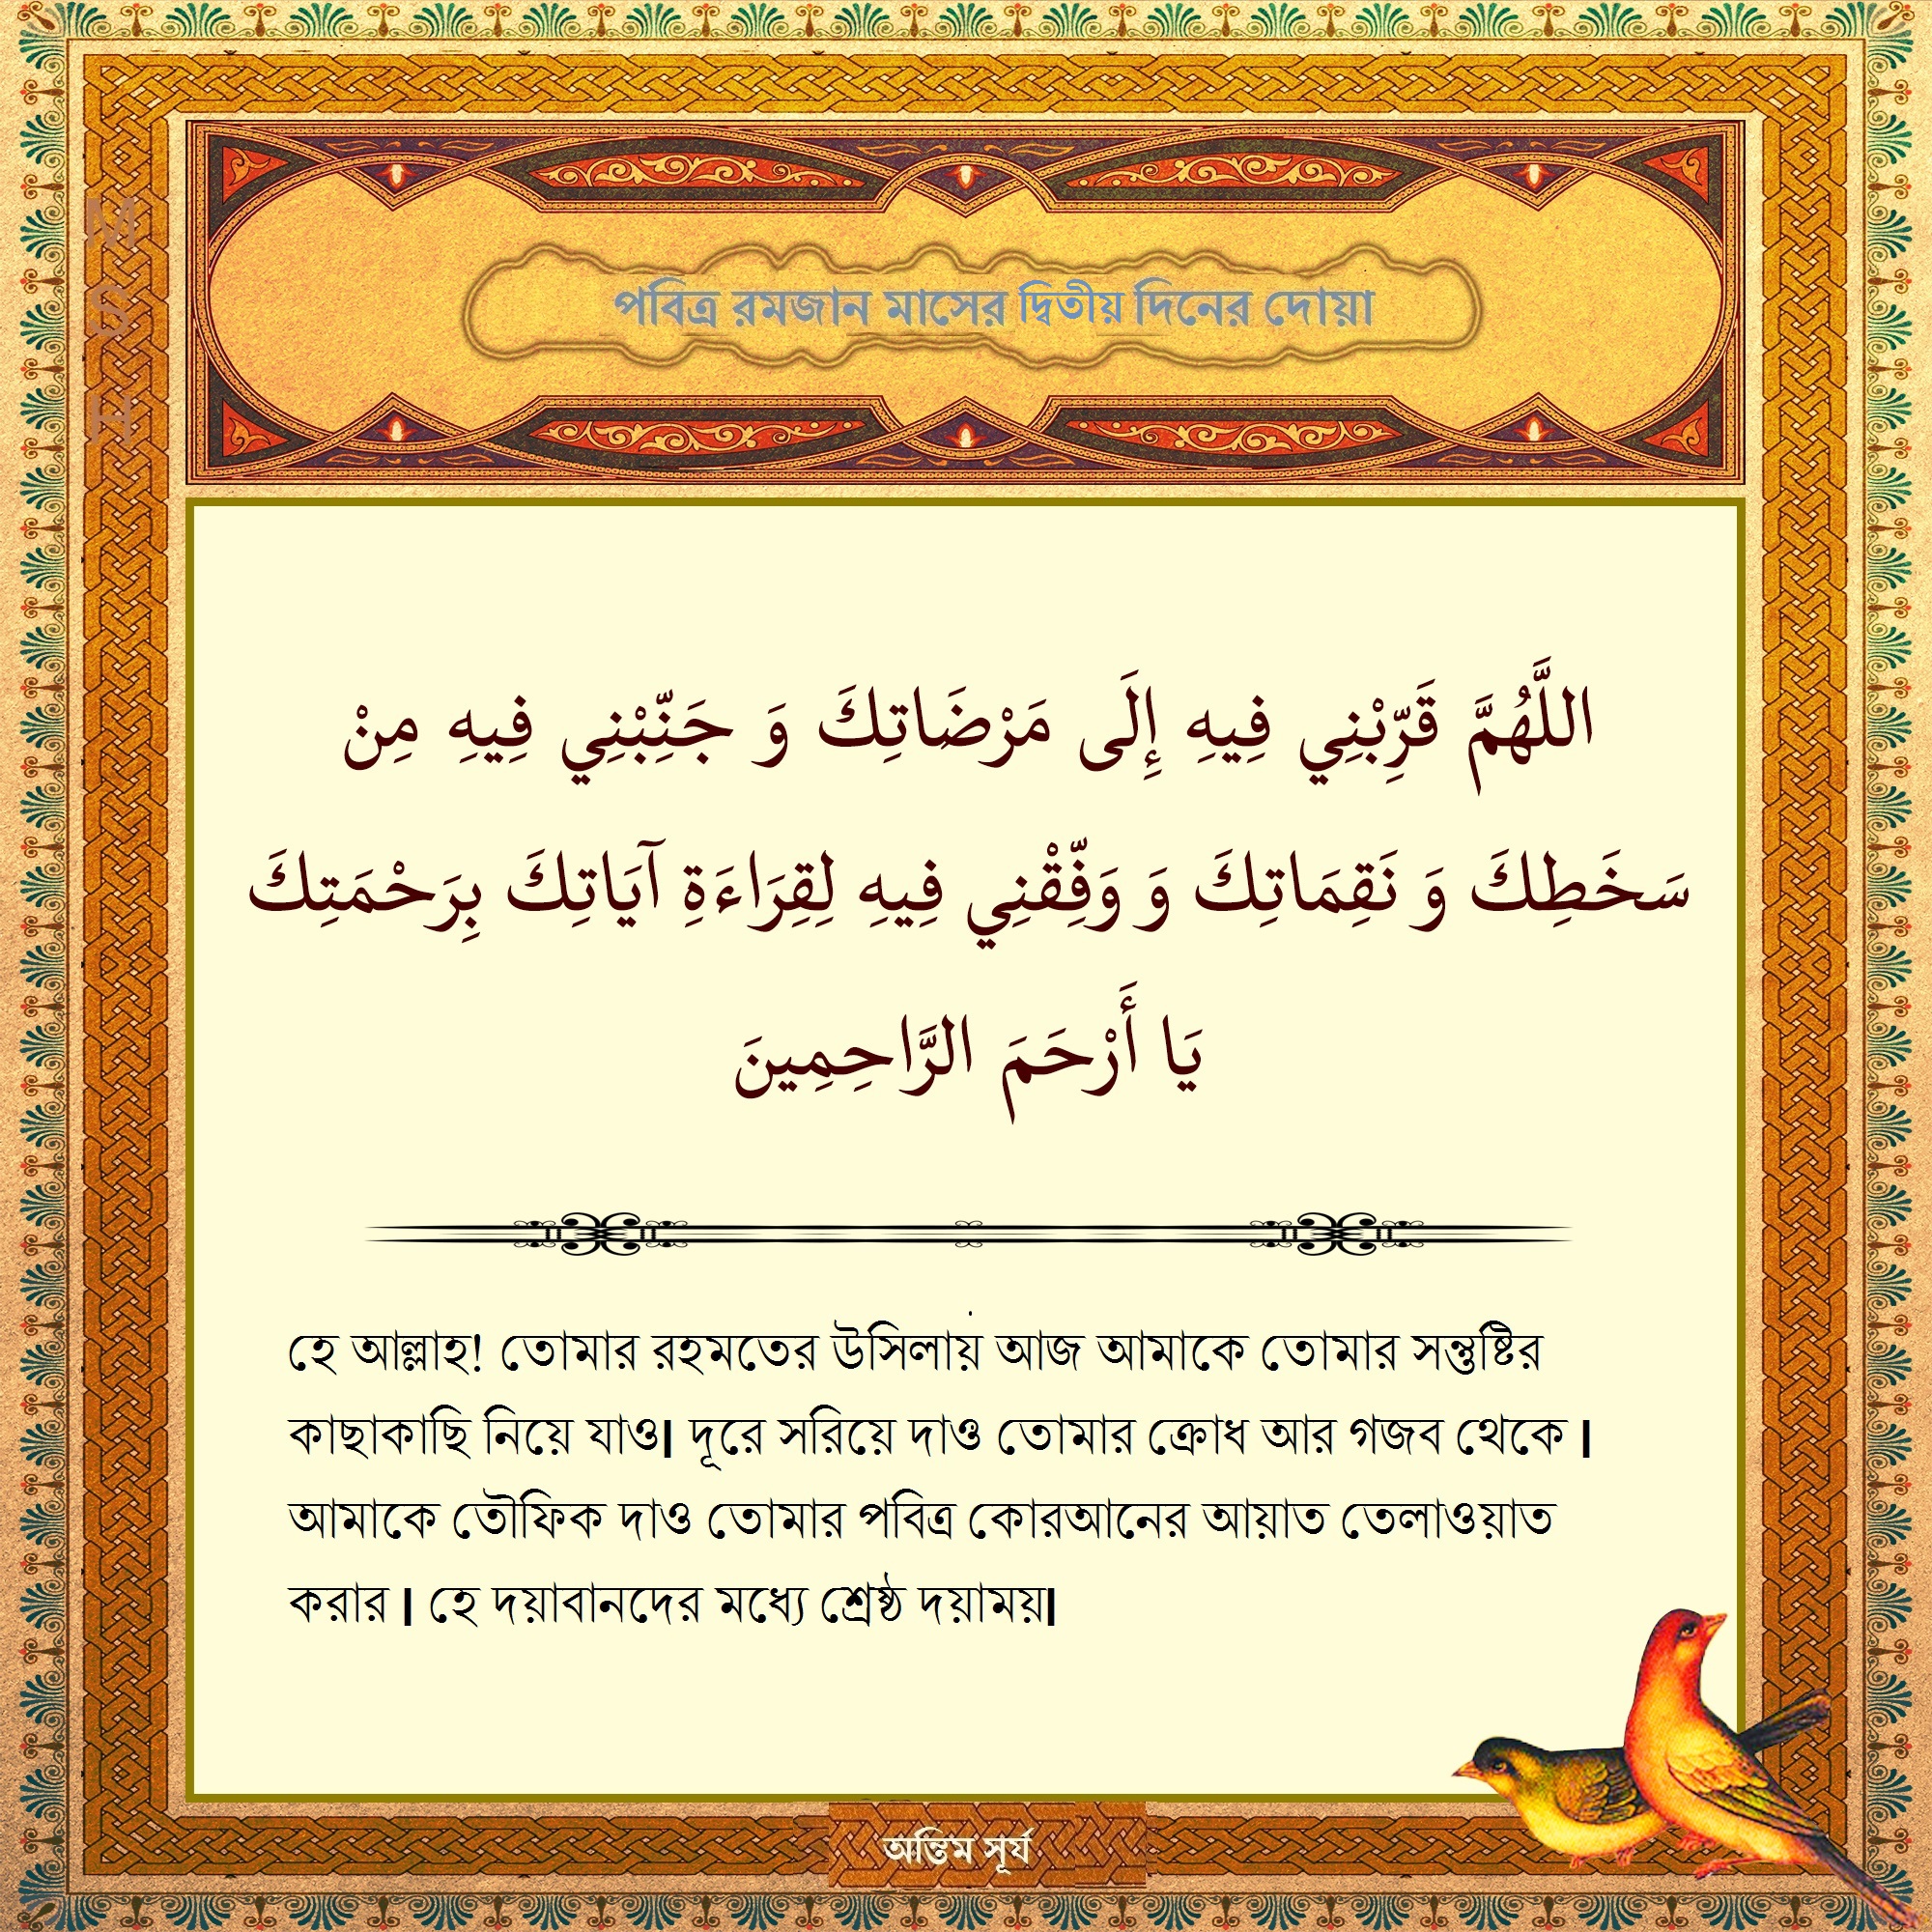 পবিত্র রমজান মাসের দ্বিতীয় দিনের দোয়া
M
S
H
اللَّهُمَّ قَرِّبْنِي فِيهِ إِلَى مَرْضَاتِكَ وَ جَنِّبْنِي فِيهِ مِنْ
سَخَطِكَ وَ نَقِمَاتِكَ وَ وَفِّقْنِي فِيهِ لِقِرَاءَةِ آيَاتِكَ بِرَحْمَتِكَ
يَا أَرْحَمَ الرَّاحِمِينَ
হে আল্লাহ! তোমার রহমতের উসিলায় আজ আমাকে তোমার সন্তুষ্টির
কাছাকাছি নিয়ে যাও। দূরে সরিয়ে দাও তোমার ক্রোধ আর গজব থেকে ।
আমাকে তৌফিক দাও তোমার পবিত্র কোরআনের আয়াত তেলাওয়াত
করার । হে দয়াবানদের মধ্যে শ্রেষ্ঠ দয়াময়।
অন্তিম সূর্য